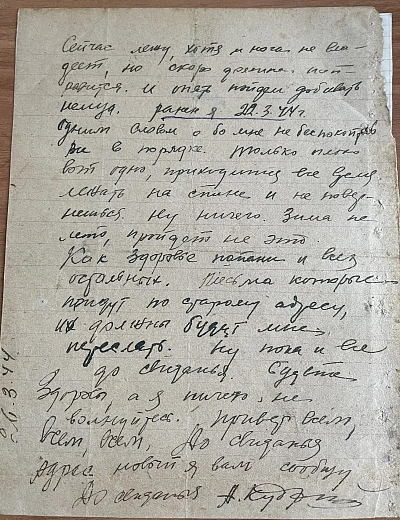 Сейчас лежу, хотя и нога не вла-
деет, но скоро должна поп-
равится. и опять пойдем добивать
немца. ранен я 22.3.44 г.
одним словом о бо мне не беспокойтесь
все в порядке. только плохо
вот одно, приходится все время
лежать на спине и не повер-
нешься. Ну ничего. Зима не
лето, пройдет и это.
Как здоровье папани и всех
остальных. Письма которые
придут по старому адресу,
их должны будут мне
переслать. Ну пока и все
до свиданья. Будьте
Здоровы, а я ничего, не
волнуйтесь. Привет всем,
всем, всем, До свиданья
Адрес новый я вам сообщу
До свиданья А.
26.3.44